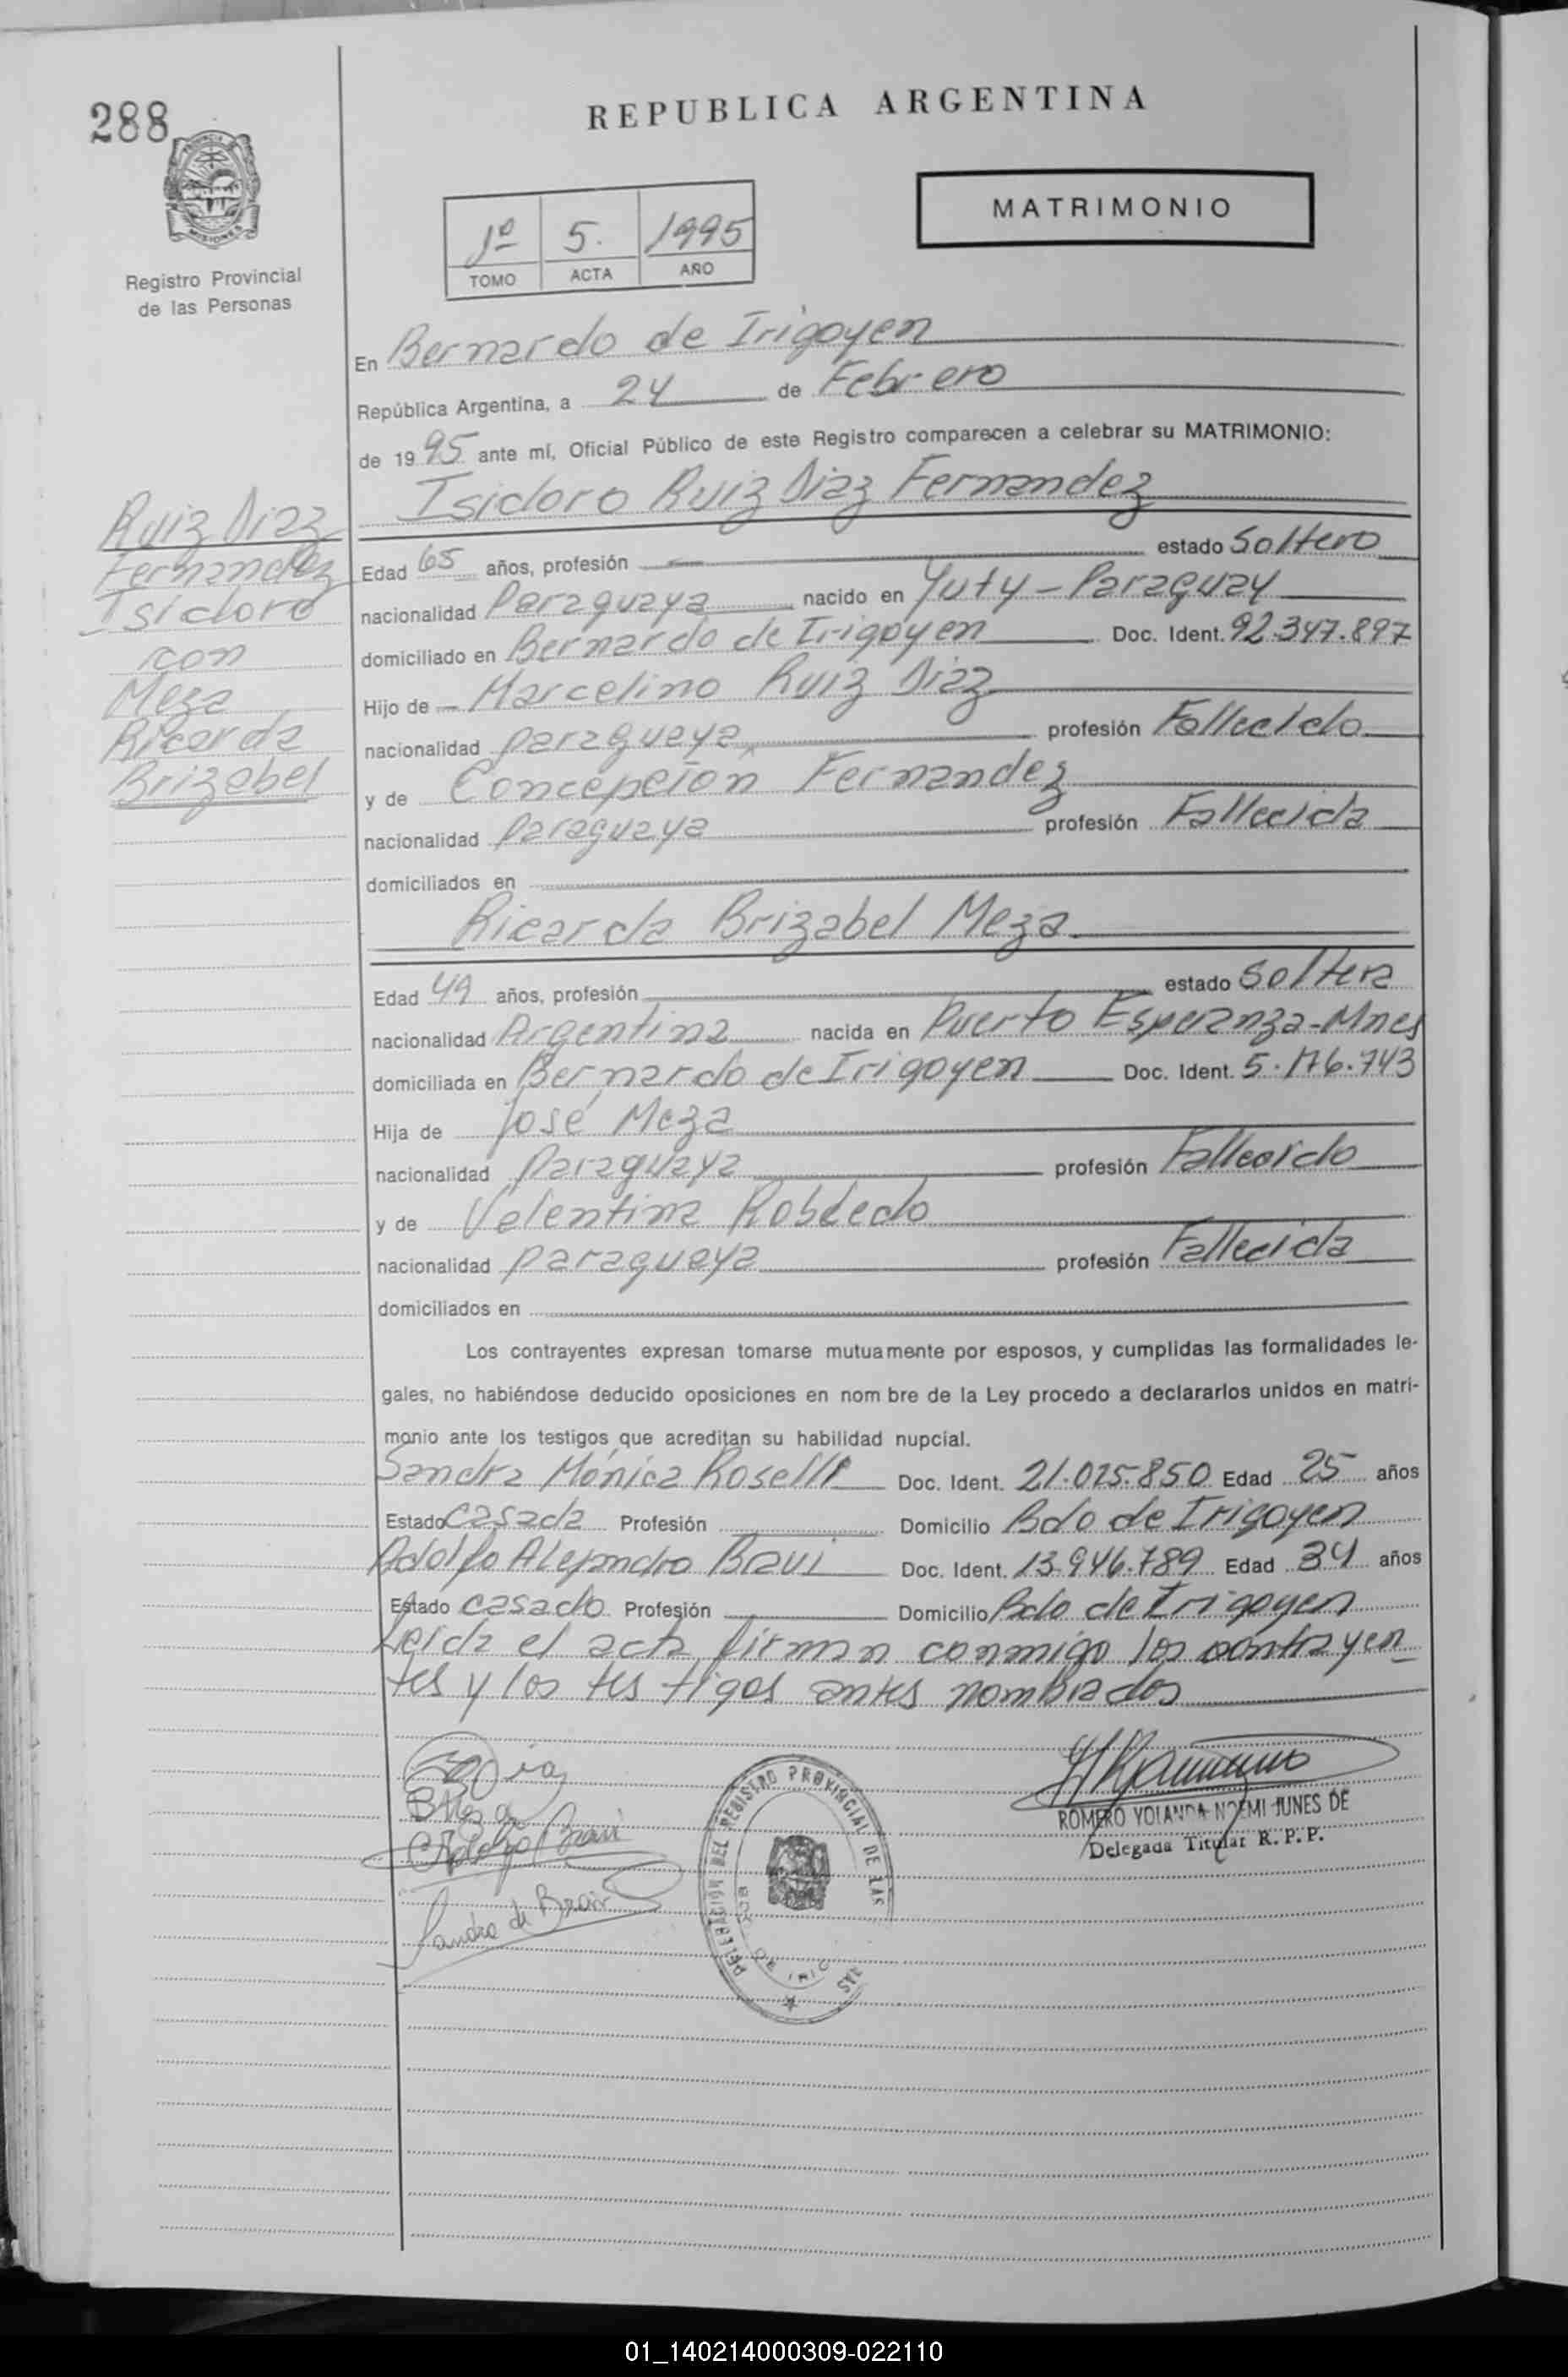 288
REPUBLICA ARGENTINA
MATRIMONIO
PROVINCIA DE
MISIONES
Registro Provincial
de las Personas
1º 5. 1995
TOMO ACTA AÑO
En Bernardo de Irigoyen
República Argentina, a 24 de Febrero
de 1995 ante mí, Oficial Público de este Registro comparecen a celebrar su MATRIMONIO:
Isidoro Ruiz Diaz Fernandez
Ruiz Diaz
Fernandez
Isidoro
con
Meza
Ricarda
Brizabel
Edad 65 años, profesión — estado Soltero
nacionalidad Paraguaya nacido en Yuty - Paraguay
domiciliado en Bernardo de Irigoyen Doc. Ident. 92.347.897
Hijo de - Marcelino Ruiz Diaz
nacionalidad paraguaya profesión Fallecido
y de Concepción Fernandez
nacionalidad Paraguaya profesión Fallecida
domiciliados en
Ricarda Brizabel Meza
Edad 49 años, profesión estado Soltera
nacionalidad Argentina nacida en Puerto Esperanza-Mnes
domiciliada en Bernardo de Irigoyen Doc. Ident. 5.176.743
Hija de José Meza
nacionalidad Paraguaya profesión Fallecido
y de Valentina Robledo
nacionalidad paraguaya profesión Fallecida
domiciliados en
Los contrayentes expresan tomarse mutuamente por esposos, y cumplidas las formalidades le-
gales, no habiéndose deducido oposiciones en nom bre de la Ley procedo a declararlos unidos en matri-
monio ante los testigos que acreditan su habilidad nupcial.
Sandra Mónica Roselli Doc. Ident. 21.025.850 Edad 25 años
Estado Casada Profesión Domicilio Bdo de Irigoyen
Adolfo Alejandro Bravi Doc. Ident. 13.946.789 Edad 34 años
Estado casado Profesión Domicilio Bdo de Irigoyen
Leida el acta, firman conmigo los contrayen_
tes y los testigos antes nombrados
B Meza
Adolfo Bravi
Sandra de Bravi
DELEGACIÓN DEL REGISTRO PROVINCIAL DE LAS
BDO. DE IRIG
ROMERO YOLANDA NOEMI JUNES DE
Delegada Titular R. P. P.
01_140214000309-022110